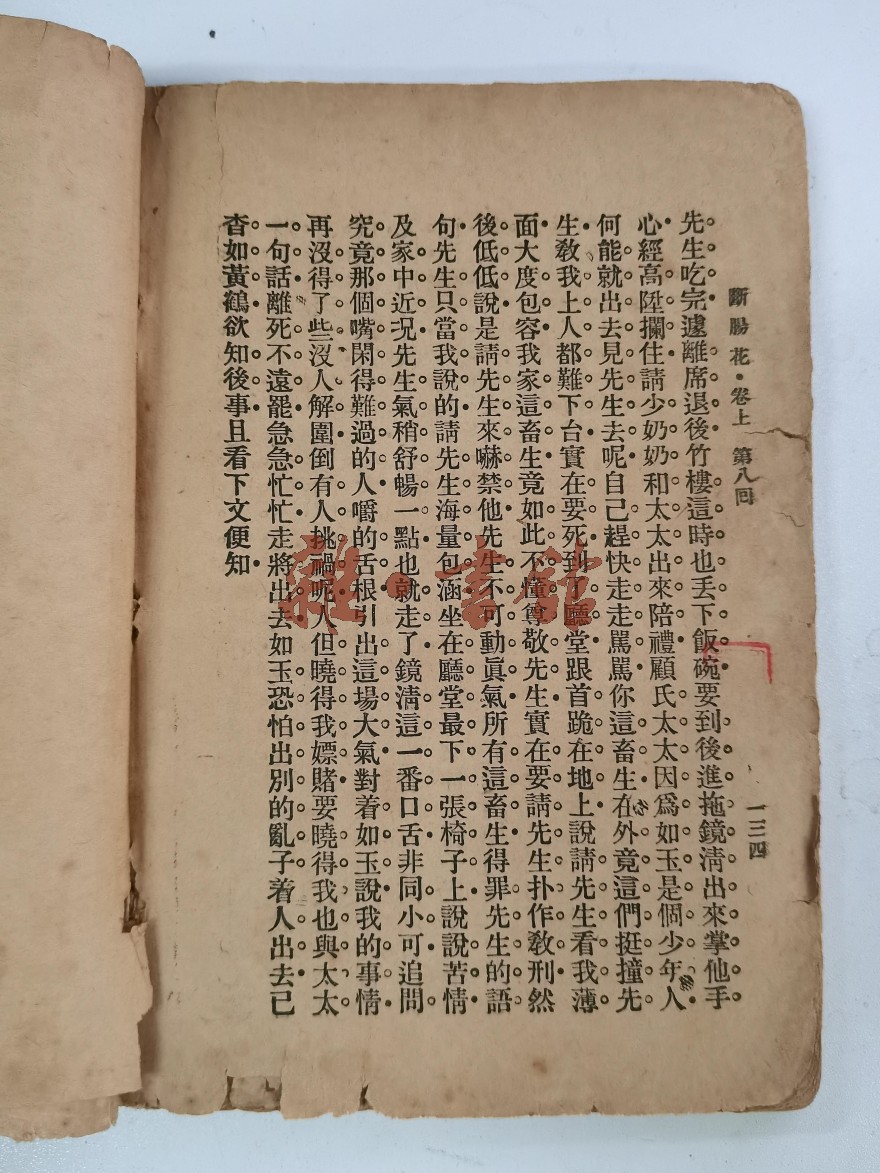 斷腸花・卷上　第八回
一三四
先生吃完遽離席退後竹樓這時也丟下飯碗要到後進拖鏡淸出來掌他手
心經高陞攔住請少奶奶和太太出來陪禮顧氏太太因爲如玉是個少年人
何能就出去見先生去呢自己趕快走走罵罵你這畜生在外竟這們挺撞先
生敎我上人都難下台實在要死到了廳堂跟首跪在地上說請先生看我薄
面大度包容我家這畜生竟如此不懂尊敬先生實在要請先生扑作敎刑然
後低低說是請先生來嚇禁他先生不可動眞氣所有這畜生得罪先生的語
句先生只當我說的請先生海量包涵坐在廳堂最下一張椅子上說說苦情
及家中近況先生氣稍舒暢一點也就走了鏡淸這一番口舌非同小可追問
究竟那個嘴閑得難過的人嚼的舌根引出這場大氣對着如玉說我的事情
再沒得了些沒人解圍倒有人挑禍呢人但曉得我嫖賭要曉得我也與太太
一句話離死不遠罷急急忙忙走將出去如玉恐怕出別的亂子着人出去已
杳如黃鶴欲知後事且看下文便知
雜・書館